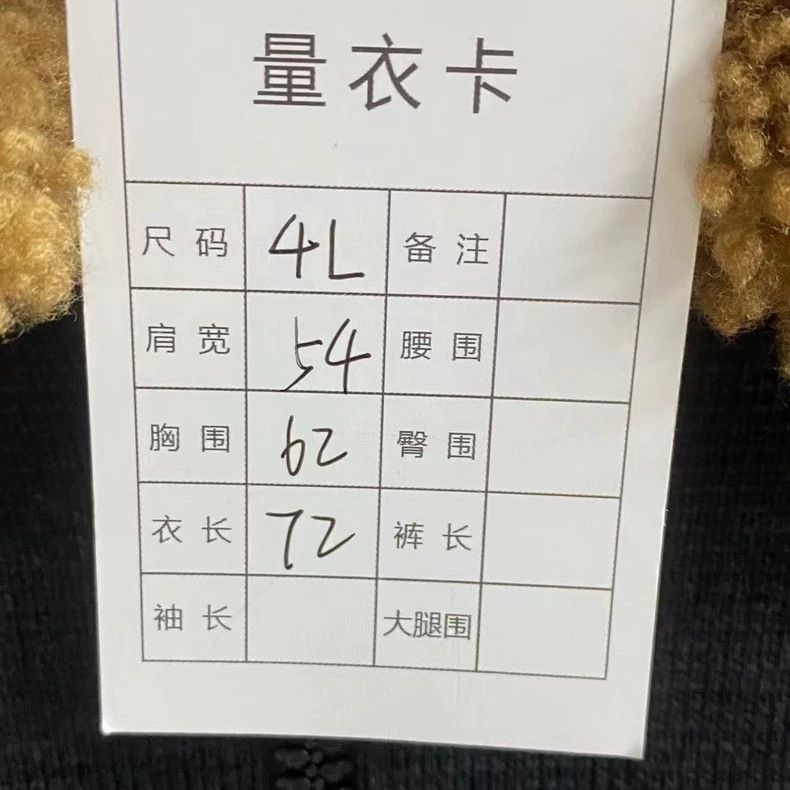 量衣卡
尺码 4L 备注
肩宽 54 腰围
胸围 62 臀围
衣长 72 裤长
袖长 大腿围